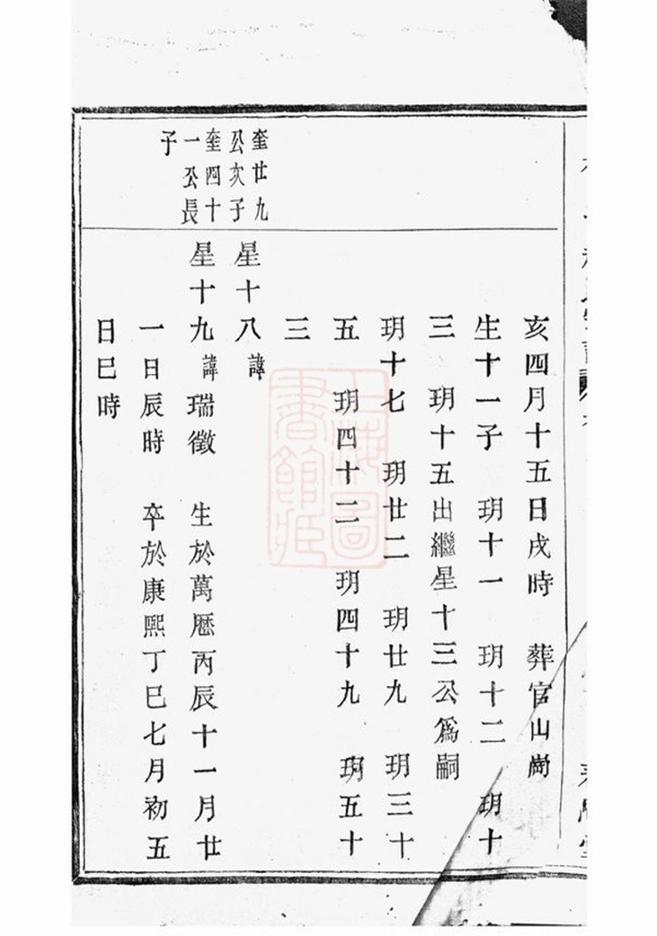 亥四月十五日戌時　葬官山崗
生十一子　玥十一　玥十二　玥十
三　玥十五出繼星十三公爲嗣
玥十七　玥廿二　玥廿九　玥三十
五　玥四十二　玥四十九　玥五十
三
奎廿九
公次子
星十八諱
奎四十
一公長
子
星十九諱瑞徵　生於萬曆丙辰十一月廿
一日辰時　卒於康熙丁巳七月初五
日巳時
上海圖
書館藏